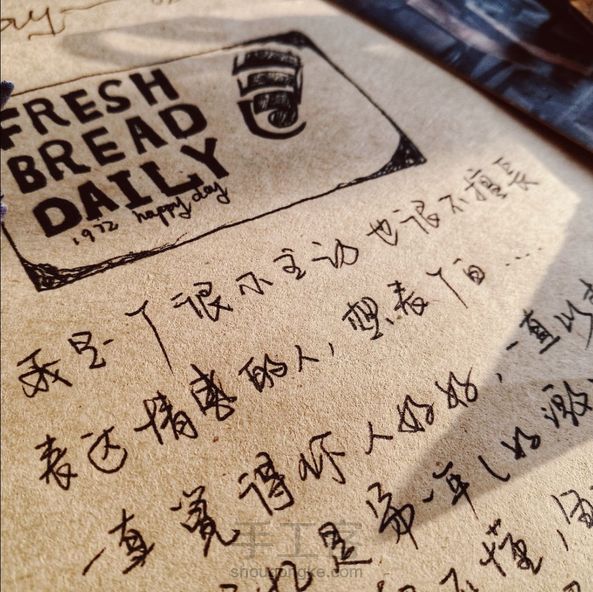 FRESH
BREAD
DAILY
1972 happy day
我是一个很不主动也很不擅长
表达情感的人，想表个白……
一直觉得你人好好，一直以来
是第一年
不懂
手工客
shougongke.com